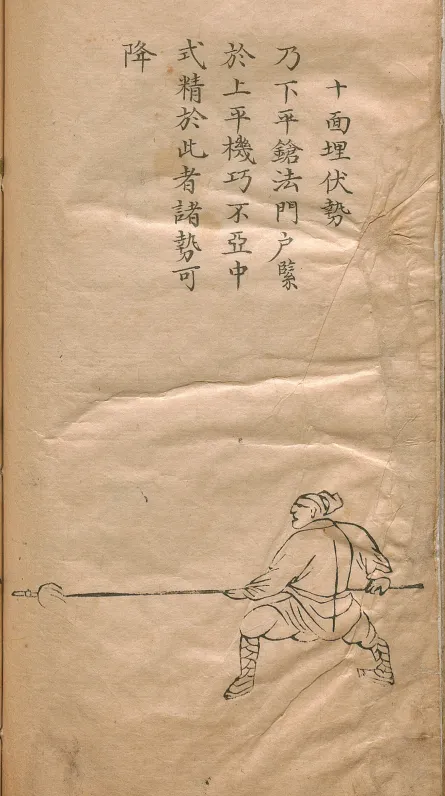 十面埋伏勢
乃下平鎗法門户緊
於上平機巧不亞中
式精於此者諸勢可
降